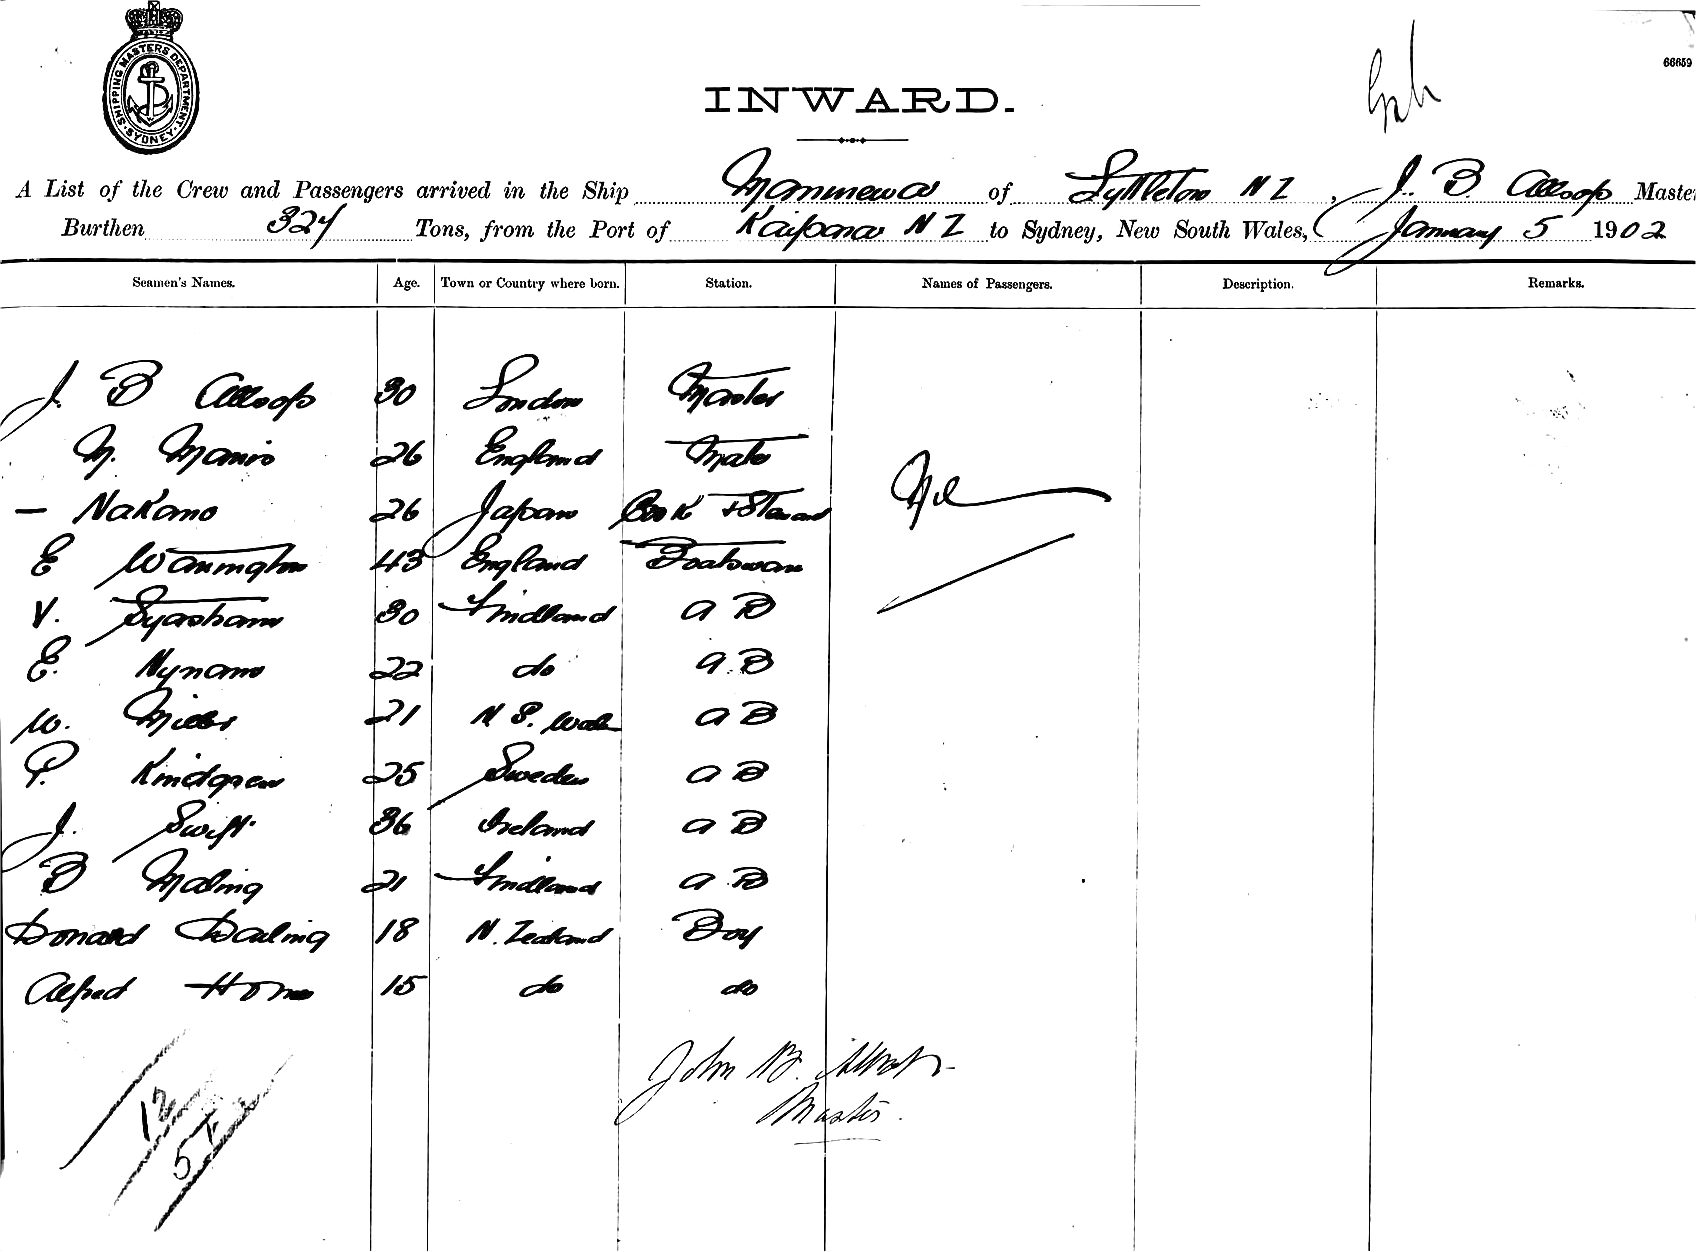 SHIPPING MASTERS DEPARTMENT SYDNEY
66659
INWARD.
A List of the Crew and Passengers arrived in the Ship Manurewa of Lyttleton N Z, J. B. Allsop Master
Burthen 324 Tons, from the Port of Kaipara N Z to Sydney, New South Wales, January 5 1902
Seamen's Names. Age. Town or Country where born. Station. Names of Passengers. Description. Remarks.
J. B Allsop 30 London Master
M. 26 England Mate
— Nakano 26 Japan Cook & Steward Nil
E Warrington 43 England Boatswain
V. 30 Findland A B
E. Nynans 22 do A.B
W. Miller 21 N S. Wales A B
P. Kindgren 25 Sweden A B
J. Swift 36 Ireland A B
B Maling 21 Findland A B
Donald Darling 18 N. Zealand Boy
Alfred Horne 15 do do
John B. Allsop
Master.
12
5